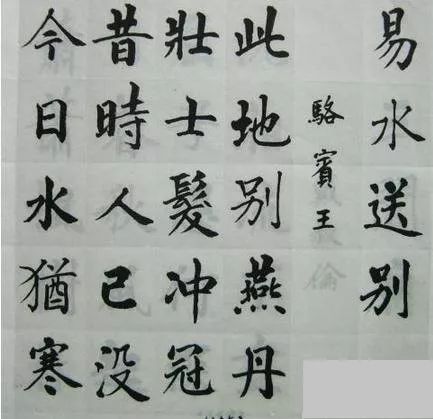 易水送别
駱賓王
此地别燕丹
壯士髮冲冠
昔時人已没
今日水猶寒